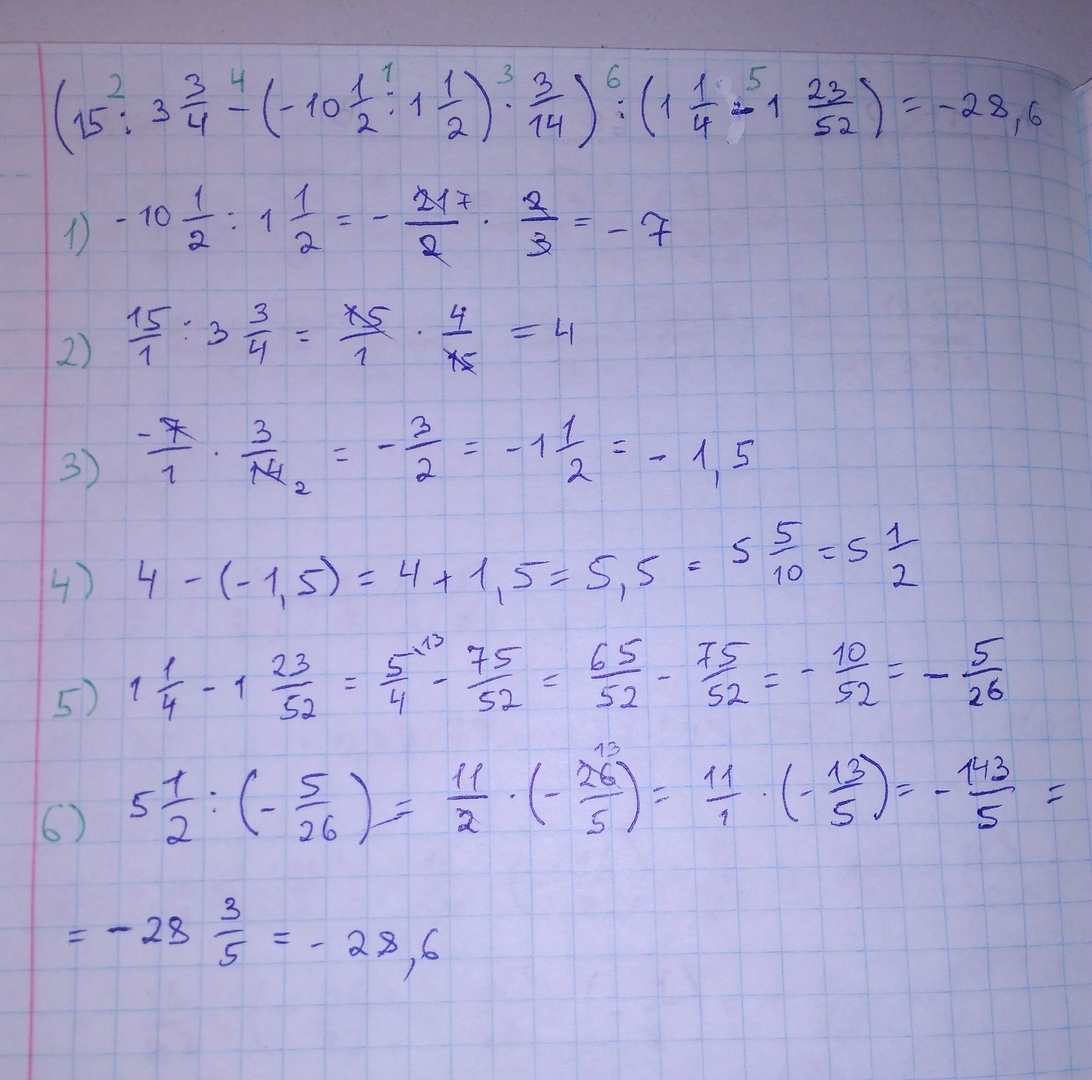 (15 : 3 3/4 - (-10 1/2 : 1 1/2) · 3/14) : (1 1/4 - 1 23/52) = -28,6
2 4 1 3 6 5
1) -10 1/2 : 1 1/2 = - 21 7/2 · 2/3 = -7
2) 15/1 : 3 3/4 = 15/1 · 4/15 = 4
3) -7/1 · 3/14 2 = - 3/2 = -1 1/2 = -1,5
4) 4 - (-1,5) = 4 + 1,5 = 5,5 = 5 5/10 = 5 1/2
5) 1 1/4 - 1 23/52 = 5/4 \13 - 75/52 = 65/52 - 75/52 = - 10/52 = - 5/26
6) 5 1/2 : (- 5/26) = 11/2 · (- 26 13/5) = 11/1 · (- 13/5) = - 143/5 =
= -28 3/5 = -28,6